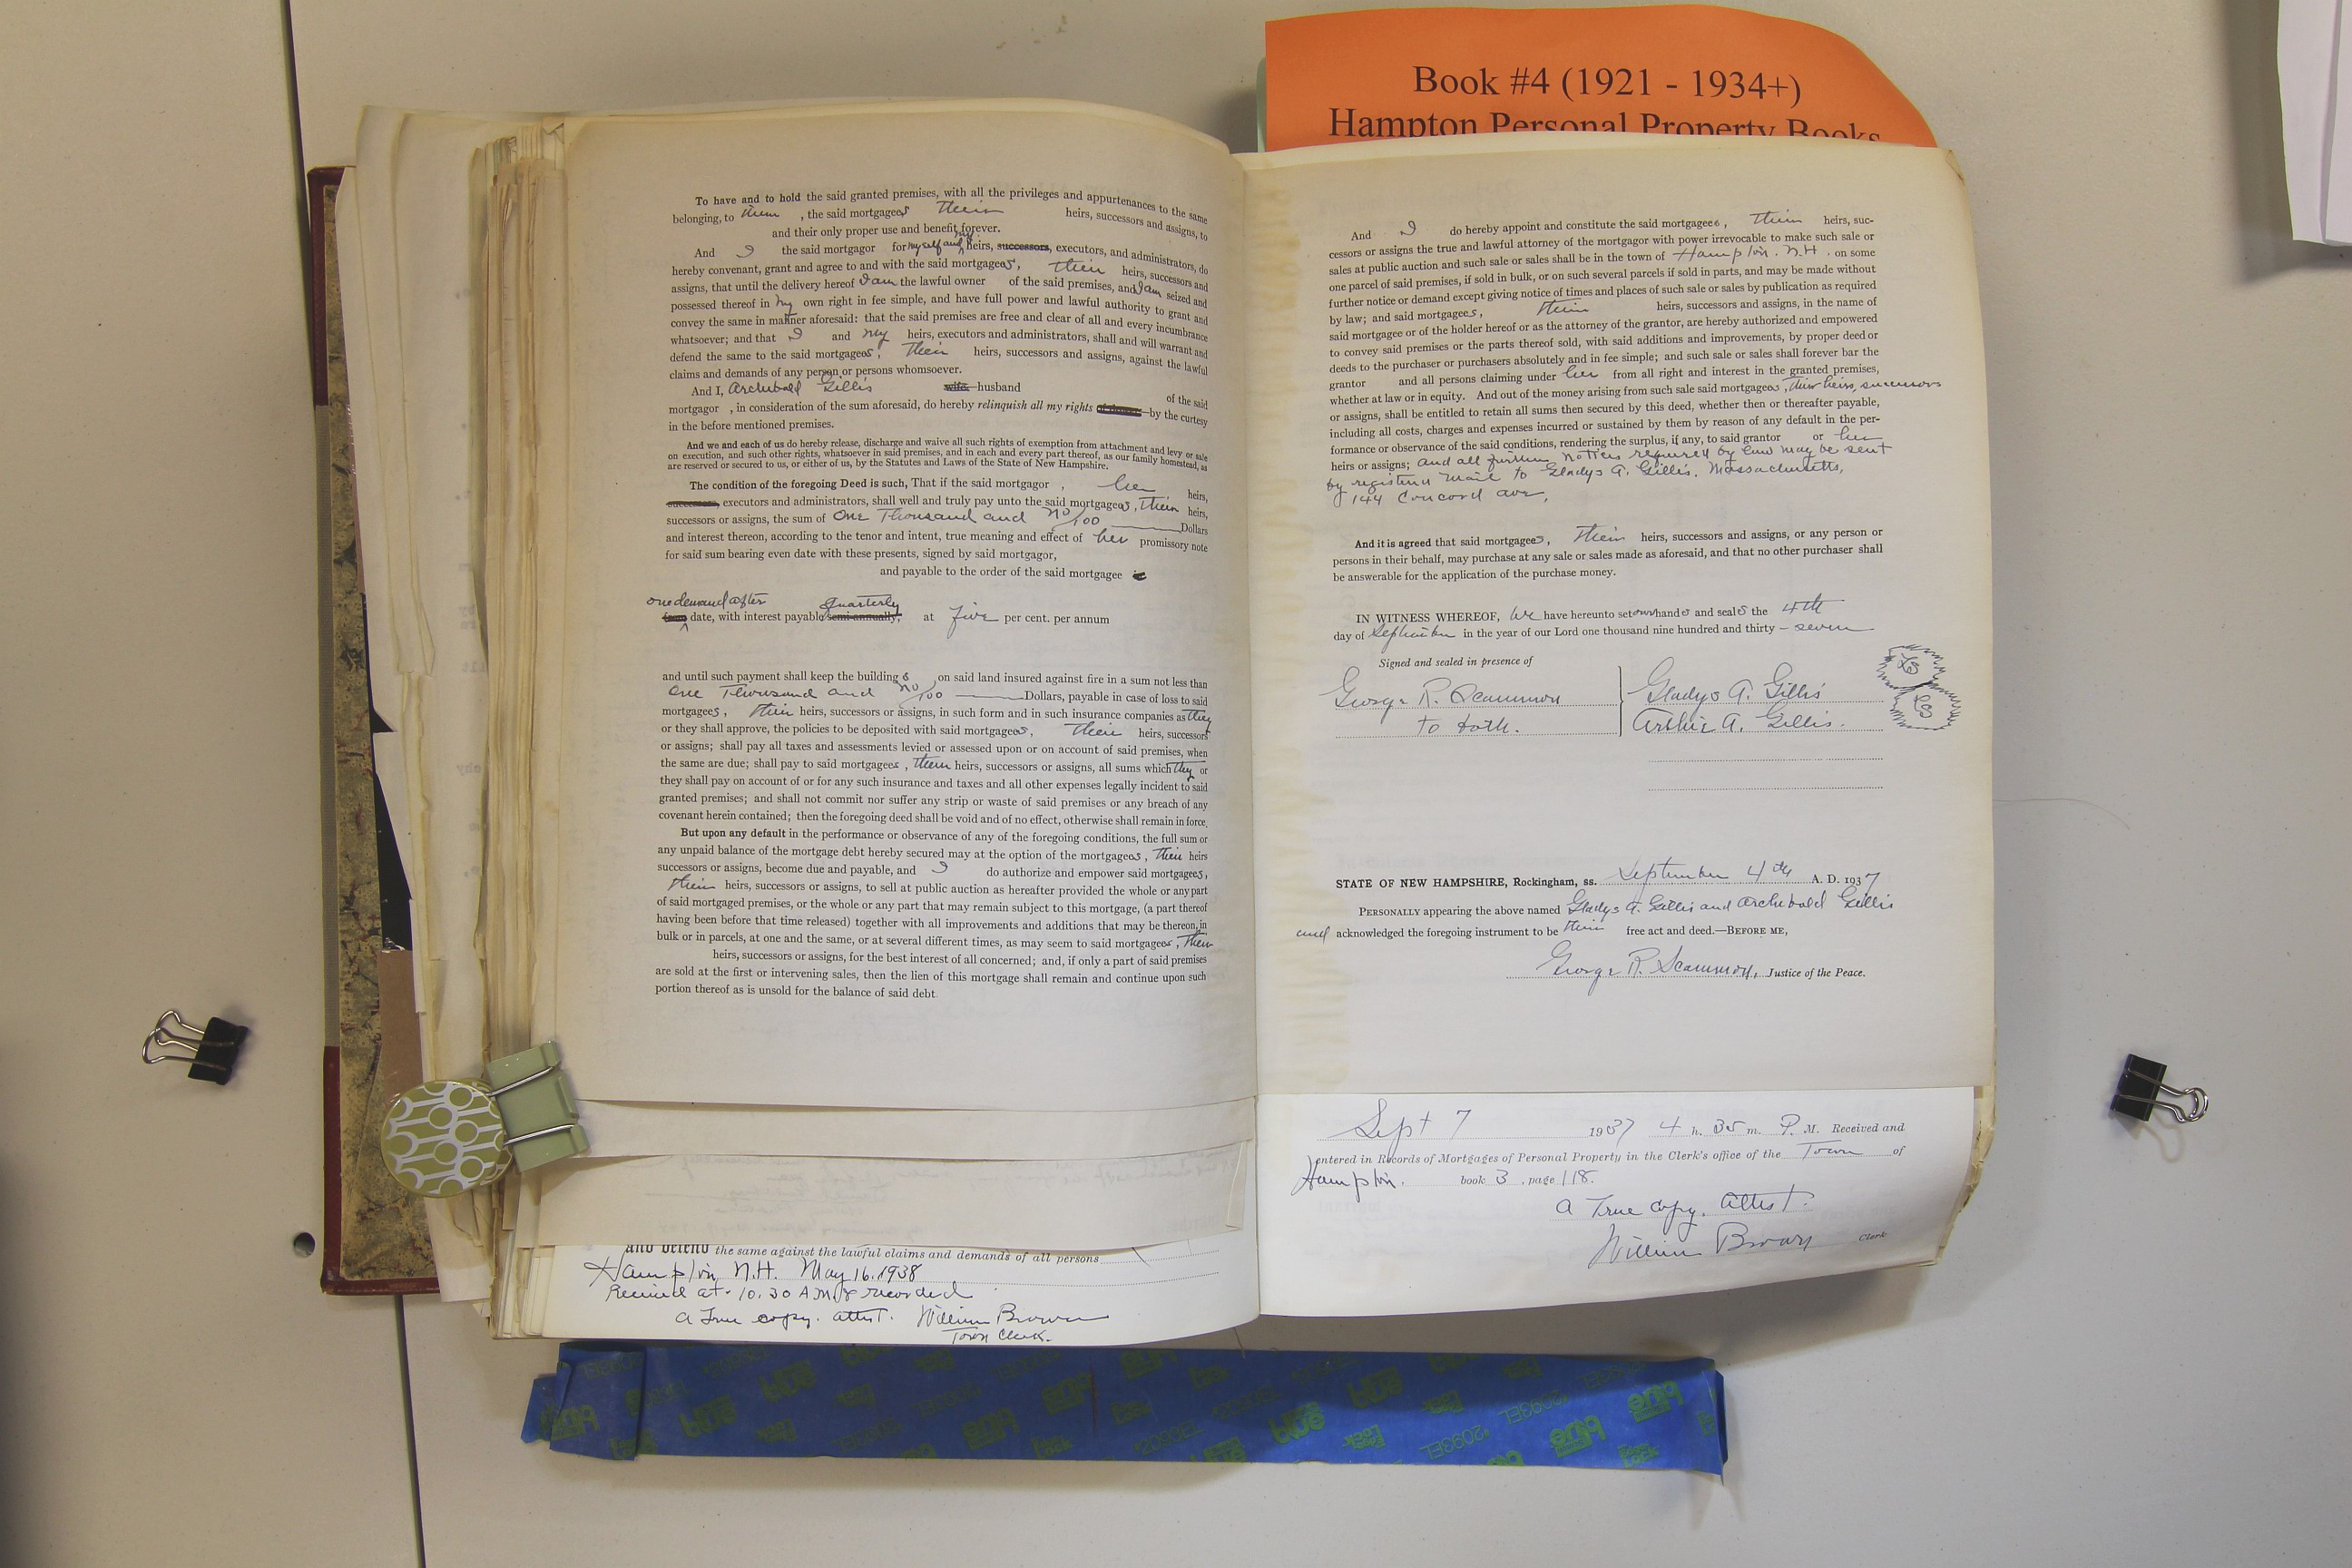 Book #4 (1921 - 1934+)
Hampton Personal Property Books
To have and to hold the said granted premises, with all the privileges and appurtenances to the same
belonging, to them , the said mortgagees their heirs, successors and assigns, to
and their only proper use and benefit forever.
And I the said mortgagor for myself and my heirs, successors, executors, and administrators, do
hereby convenant, grant and agree to and with the said mortgagees, their heirs, successors and
assigns, that until the delivery hereof I am the lawful owner of the said premises, and I am seized and
possessed thereof in my own right in fee simple, and have full power and lawful authority to grant and
convey the same in manner aforesaid: that the said premises are free and clear of all and every incumbrance
whatsoever; and that I and my heirs, executors and administrators, shall and will warrant and
defend the same to the said mortgagees, their heirs, successors and assigns, against the lawful
claims and demands of any person or persons whomsoever.
And I, Archibald Gillis wife husband
of the said
mortgagor , in consideration of the sum aforesaid, do hereby relinquish all my rights by the curtesy
in the before mentioned premises.
And we and each of us do hereby release, discharge and waive all such rights of exemption from attachment and levy or sale
on execution, and such other rights, whatsoever in said premises, and in each and every part thereof, as our family homestead, as
are reserved or secured to us, or either of us, by the Statutes and Laws of the State of New Hampshire.
The condition of the foregoing Deed is such, That if the said mortgagor , her heirs,
executors and administrators, shall well and truly pay unto the said mortgagees, their heirs,
successors or assigns, the sum of One Thousand and no/100 Dollars
and interest thereon, according to the tenor and intent, true meaning and effect of her promissory note
for said sum bearing even date with these presents, signed by said mortgagor,
and payable to the order of the said mortgagee
one demand after Quarterly
date, with interest payable semi-annually, at five per cent. per annum
and until such payment shall keep the buildings on said land insured against fire in a sum not less than
One Thousand and no/100 Dollars, payable in case of loss to said
mortgagees, their heirs, successors or assigns, in such form and in such insurance companies as they
or they shall approve, the policies to be deposited with said mortgagees, their heirs, successors
or assigns; shall pay all taxes and assessments levied or assessed upon or on account of said premises, when
the same are due; shall pay to said mortgagees, them heirs, successors or assigns, all sums which they or
they shall pay on account of or for any such insurance and taxes and all other expenses legally incident to said
granted premises; and shall not commit nor suffer any strip or waste of said premises or any breach of any
covenant herein contained; then the foregoing deed shall be void and of no effect, otherwise shall remain in force.
But upon any default in the performance or observance of any of the foregoing conditions, the full sum or
any unpaid balance of the mortgage debt hereby secured may at the option of the mortgagees, their heirs
successors or assigns, become due and payable, and I do authorize and empower said mortgagees,
their heirs, successors or assigns, to sell at public auction as hereafter provided the whole or any part
of said mortgaged premises, or the whole or any part that may remain subject to this mortgage, (a part thereof
having been before that time released) together with all improvements and additions that may be thereon, in
bulk or in parcels, at one and the same, or at several different times, as may seem to said mortgagees, their
heirs, successors or assigns, for the best interest of all concerned; and, if only a part of said premises
are sold at the first or intervening sales, then the lien of this mortgage shall remain and continue upon such
portion thereof as is unsold for the balance of said debt.
and defend the same against the lawful claims and demands of all persons
Hampton, N.H. May 16, 1938
Received at 10.30 A.M. & recorded
a True copy. attest. William Brown
Town Clerk.
And I do hereby appoint and constitute the said mortgagees, their heirs, suc-
cessors or assigns the true and lawful attorney of the mortgagor with power irrevocable to make such sale or
sales at public auction and such sale or sales shall be in the town of Hampton. N.H. on some
one parcel of said premises, if sold in bulk, or on such several parcels if sold in parts, and may be made without
further notice or demand except giving notice of times and places of such sale or sales by publication as required
by law; and said mortgagees, their heirs, successors and assigns, in the name of
said mortgagee or of the holder hereof or as the attorney of the grantor, are hereby authorized and empowered
to convey said premises or the parts thereof sold, with said additions and improvements, by proper deed or
deeds to the purchaser or purchasers absolutely and in fee simple; and such sale or sales shall forever bar the
grantor and all persons claiming under her from all right and interest in the granted premises,
whether at law or in equity. And out of the money arising from such sale said mortgagees, their heirs, successors
or assigns, shall be entitled to retain all sums then secured by this deed, whether then or thereafter payable,
including all costs, charges and expenses incurred or sustained by them by reason of any default in the per-
formance or observance of the said conditions, rendering the surplus, if any, to said grantor or her
heirs or assigns; and all further notices required by law may be sent
by registered mail to Gladys A. Gillis. Massachusetts,
144 Concord ave,
And it is agreed that said mortgagees, their heirs, successors and assigns, or any person or
persons in their behalf, may purchase at any sale or sales made as aforesaid, and that no other purchaser shall
be answerable for the application of the purchase money.
IN WITNESS WHEREOF, we have hereunto set our hands and seals the 4th
day of September in the year of our Lord one thousand nine hundred and thirty - seven
Signed and sealed in presence of
George R. Scammon Gladys A. Gillis LS
to both. Archie A. Gillis. LS
STATE OF NEW HAMPSHIRE, Rockingham, ss. September 4th A. D. 1937
PERSONALLY appearing the above named Gladys A. Gillis and Archibald Gillis
and acknowledged the foregoing instrument to be their free act and deed.—BEFORE ME,
George R. Scammon, Justice of the Peace.
Sept 7 1937 4 h. 35 m. P. M. Received and
entered in Records of Mortgages of Personal Property in the Clerk's office of the Town of
Hampton. book 3 , page 118.
a True copy, attest.
William Brown Clerk